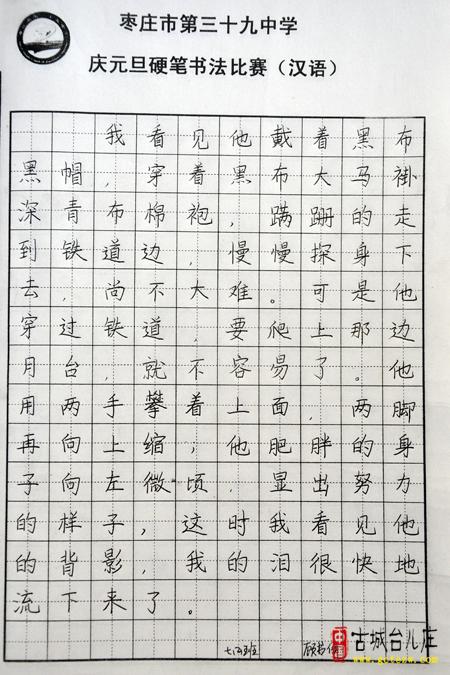 枣庄市第三十九中学
庆元旦硬笔书法比赛（汉语）
我看见他戴着黑布
黑帽，穿着黑布大马褂
深青布棉袍，蹒跚的走
到铁道边，慢慢探身下
去，尚不大难。可是他
穿过铁道，要爬上那边
月台，就不容易了。他
用两手攀着上面，两脚
再向上缩；他肥胖的身
子向左微顷，显出努力
的样子，这时我看见他
的背影，我的泪很快地
流下来了。
中国 古城台儿庄